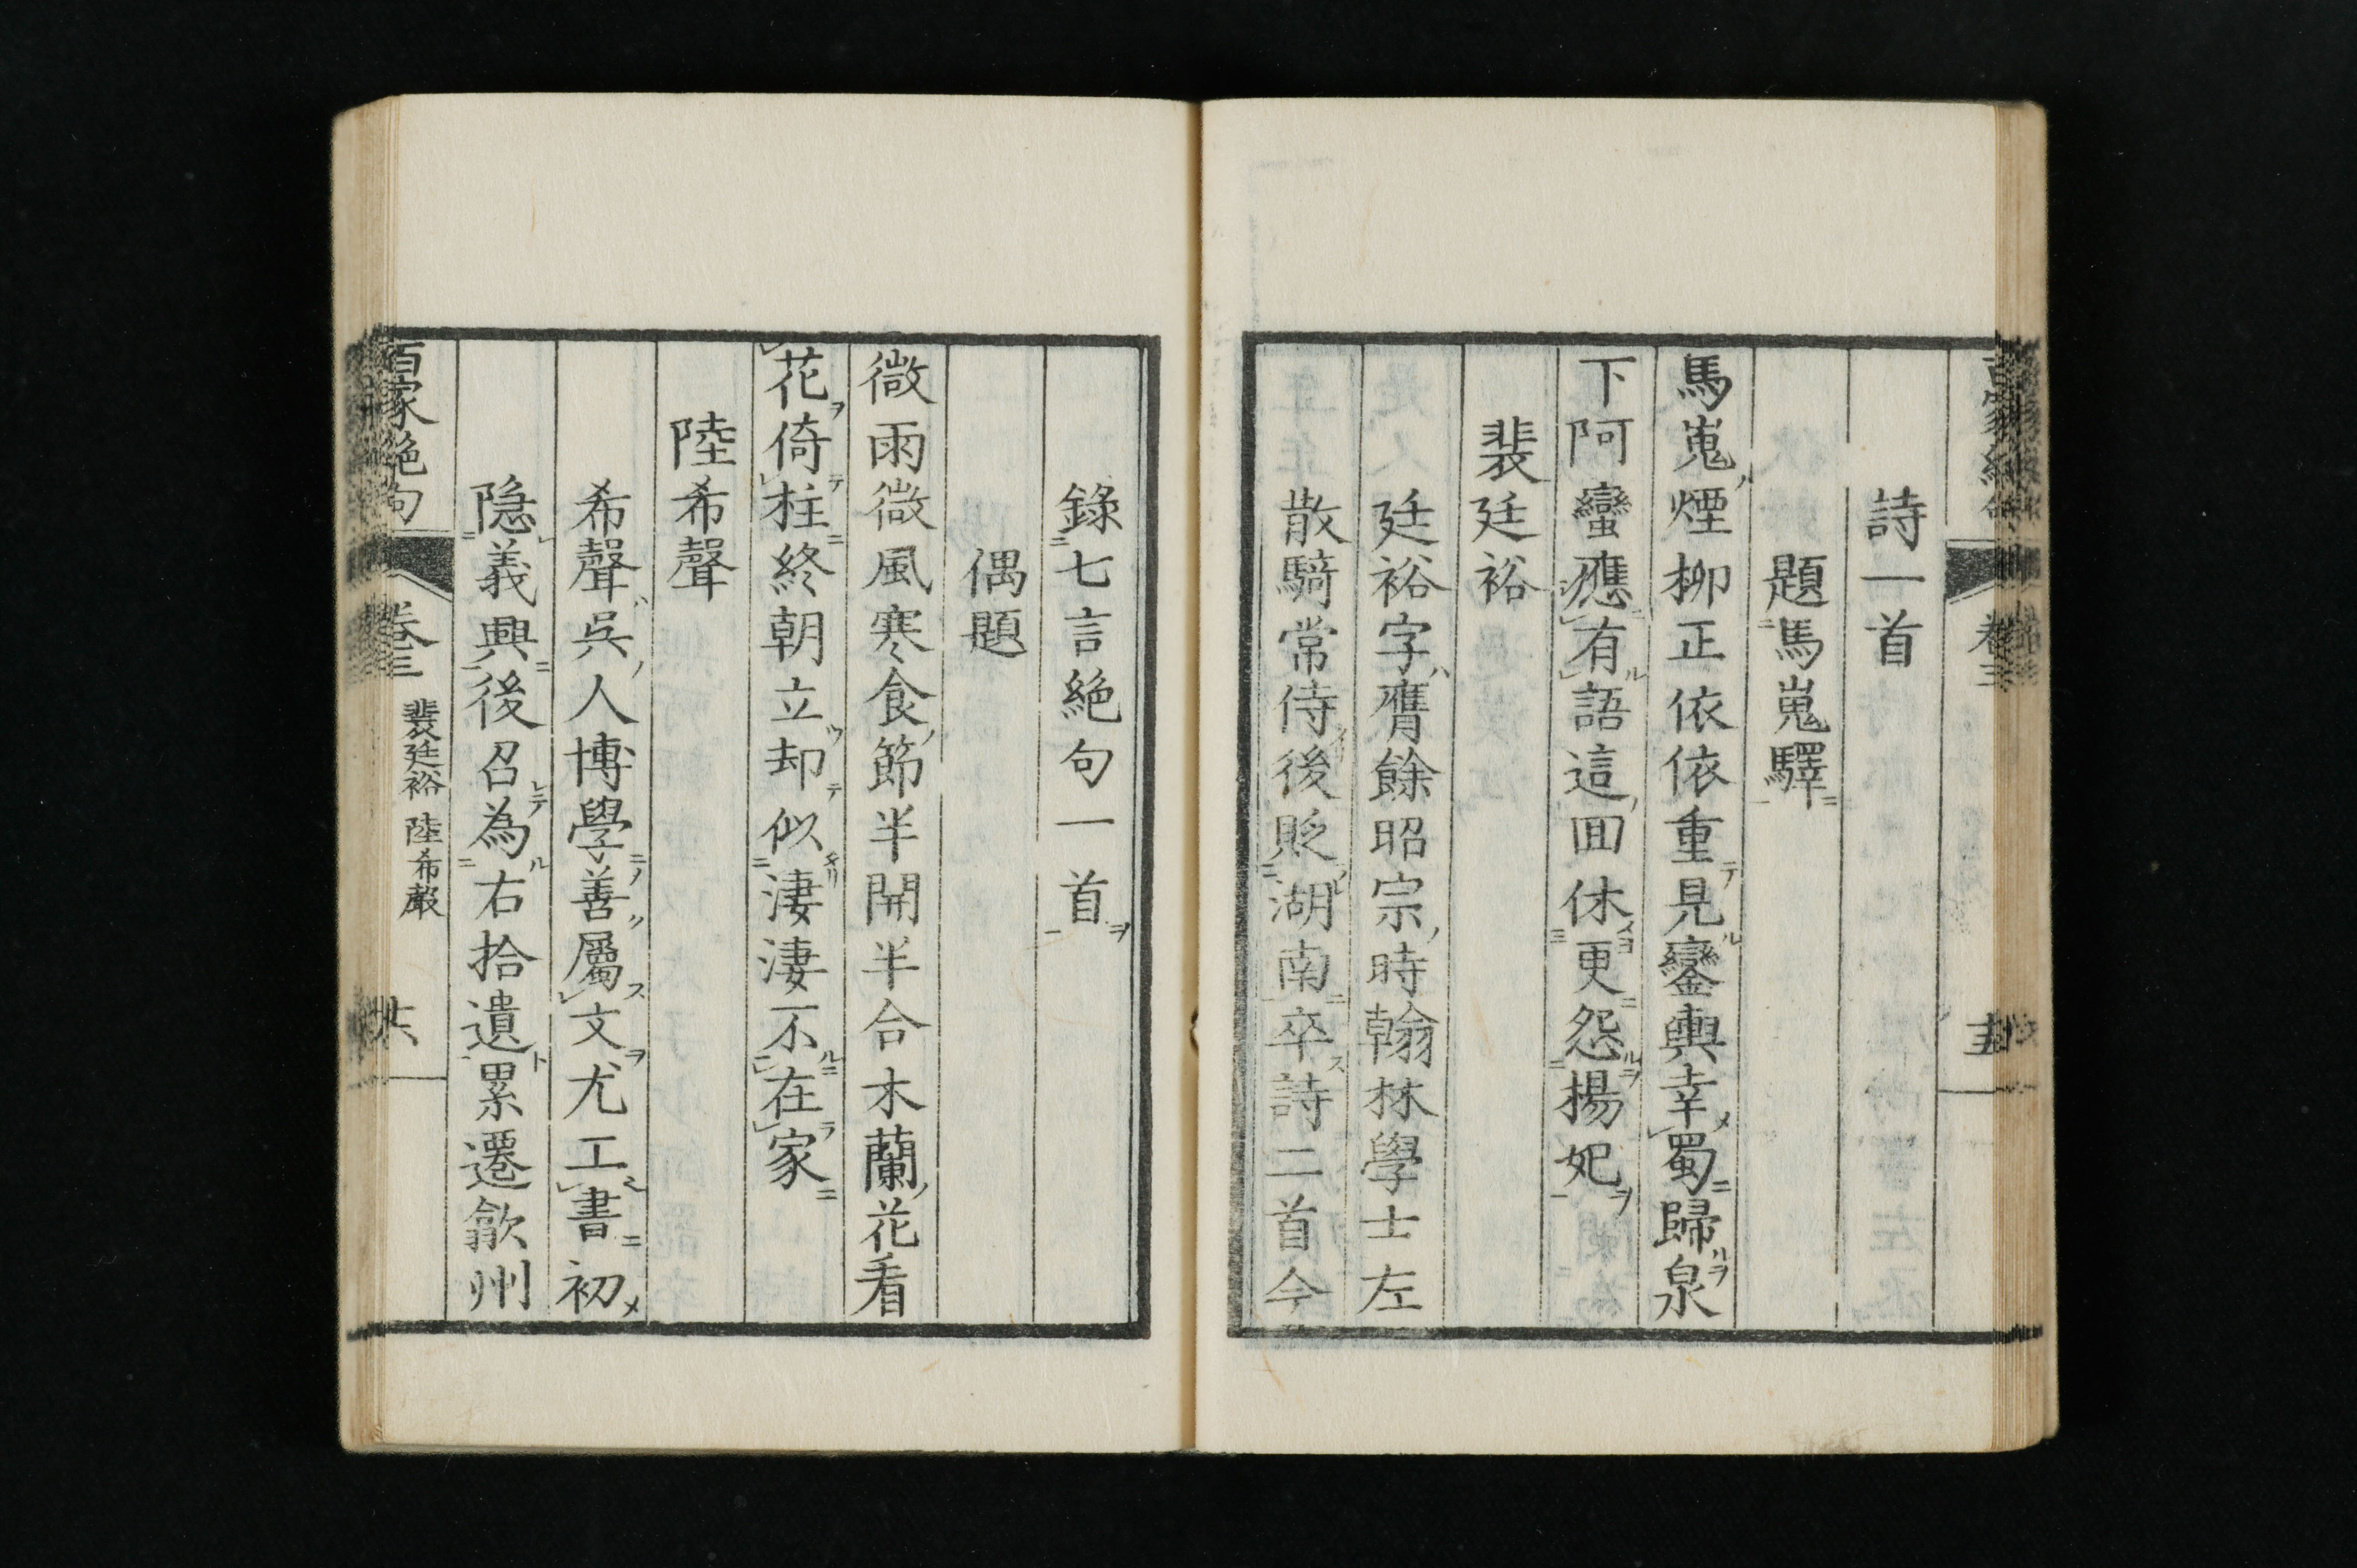 詩一首
題馬嵬驛
馬嵬煙柳正依依重見鑾輿幸蜀歸泉
下阿蠻應有語這囬休更怨揚妃
裴廷裕
廷裕字膺餘昭宗時翰林學士左
散騎常侍後貶湖南卒詩二首今
錄七言絶句一首
偶題
微雨微風寒食節半開半合木蘭花看
花倚柱終朝立却似淒淒不在家
陸希聲
希聲吳人博學善屬文尤工書初
隐義興後召為右拾遺累遷歙州
百家絶句 卷三 裴廷裕 陸希聲 廿六